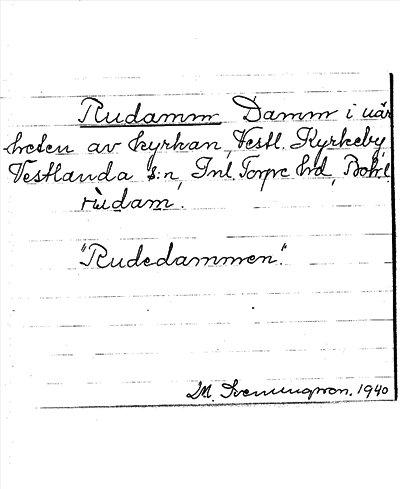 Rudamm Damm i när
heten av kyrkan, Västl. Kyrkeby,
Västlanda s:n, Inl. Torpe hd, Bohl.
rùdam.
"Rudedammen".
M. Sveningson. 1940